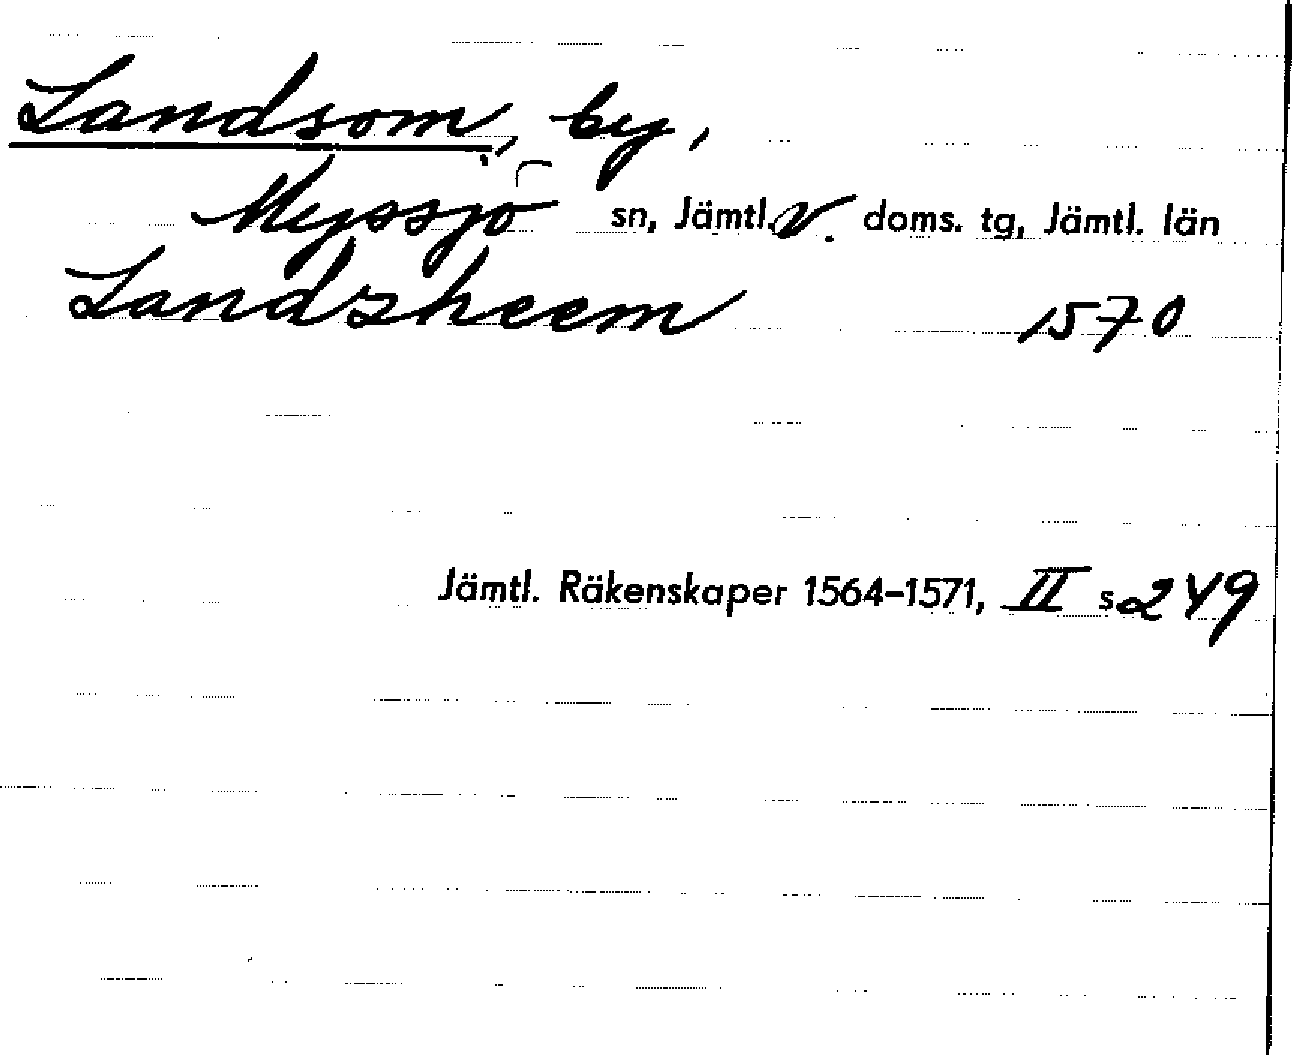 Landsom, by,
Myssjö sn, Jämtl. v. doms. tg, Jämtl. län
Landzheem 1570
Jämtl. Räkenskaper 1564–1571, II s 249